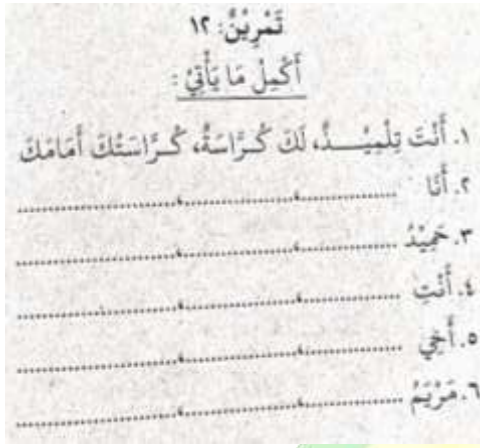 تَمْرِيْنٌ: ١٢
أَكْمِلْ مَا يَأْتِيْ:
١. أَنْتَ تِلْمِيْـــذٌ، لَكَ كُـرَّاسَةٌ، كُـرَّاسَتُكَ أَمَامَكَ
٢. أَنَا ..................،..................،..................
٣. حَمِيْدٌ ..................،..................،..................
٤. أَنْتِ ..................،..................،..................
٥. أَخِيْ ..................،..................،..................
٦. مَرْيَمُ ..................،..................،..................